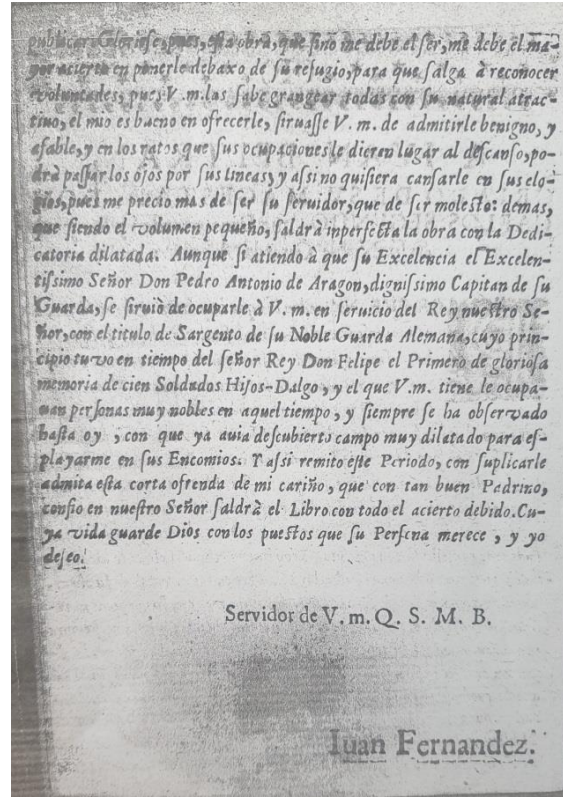 publicar. Gloriese, pues, esta obra, que sino me debe el ser, me debe el ma-
yor acierto en ponerle debaxo de su refugio, para que salga à reconocer
voluntades, pues V.m. las sabe grangear todas con su natural atrac-
tiuo, el mio es bueno en ofrecerle, siruasse V. m. de admitirle benigno, y
afable, y en los ratos que sus ocupaciones le dieren lugar al descanso, po-
drà passar los ojos por sus lineas, y assi no quisiera cansarle en sus elo-
gios, pues me precio mas de ser su seruidor, que de ser molesto: demas,
que siendo el volumen pequeño, saldrà inperfecta la obra con la Dedi-
catoria dilatada. Aunque si atiendo à que su Excelencia el Excelen-
tissimo Señor Don Pedro Antonio de Aragon, dignissimo Capitan de su
Guarda, se siruiò de ocuparle à V. m. en seruicio del Rey nuestro Se-
ñor, con el titulo de Sargento de su Noble Guarda Alemana, cuyo prin-
cipio tuvo en tiempo del señor Rey Don Felipe el Primero de gloriosa
memoria de cien Soldados Hijos-Dalgo, y el que V.m. tiene le ocupa-
uan personas muy nobles en aquel tiempo, y siempre se ha observado
hasta oy, con que ya auia descubierto campo muy dilatado para es-
playarme en sus Encomios. Y assi remito este Periodo, con suplicarle
admita esta corta ofrenda de mi cariño, que con tan buen Padrino,
confio en nuestro Señor saldrà el Libro con todo el acierto debido. Cu-
ya vida guarde Dios con los puestos que su Persona merece, y yo
dejeo.
Servidor de V. m. Q. S. M. B.
Iuan Fernandez.